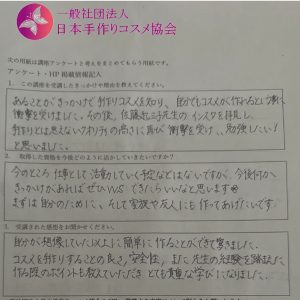 一般社団法人
日本手作りコスメ協会
次の用紙は講座アンケートと考えをまとめてもらう用紙です。
アンケート・HP掲載情報記入
1. この講座を受講したきっかけや理由を教えてください。
あることがきっかけで手作りコスメを知り、自分でもコスメが作れるという事に
衝撃を受けました。その後、佐藤 先生のインスタを拝見し、
手作りとは思えないクオリティの高さに再び衝撃を受け、勉強したい!
と思いました。
2. 取得した資格を今後どのように活かしていきたいですか?
今のところ仕事として活動していく予定などはないですが、今後何か
きっかけがあればぜひWSもできたらいいなと思います
まずは自分のために、そして家族や友人にも作ってあげたいです。
3. 受講された感想をお聞かせください。
自分が想像していた以上に簡単に作ることができて驚きました。
コスメを手作りすることの良さ、安全性、また先生の経験を踏まえた
作る際のポイントも教えていただき、とても貴重な学びになりました。